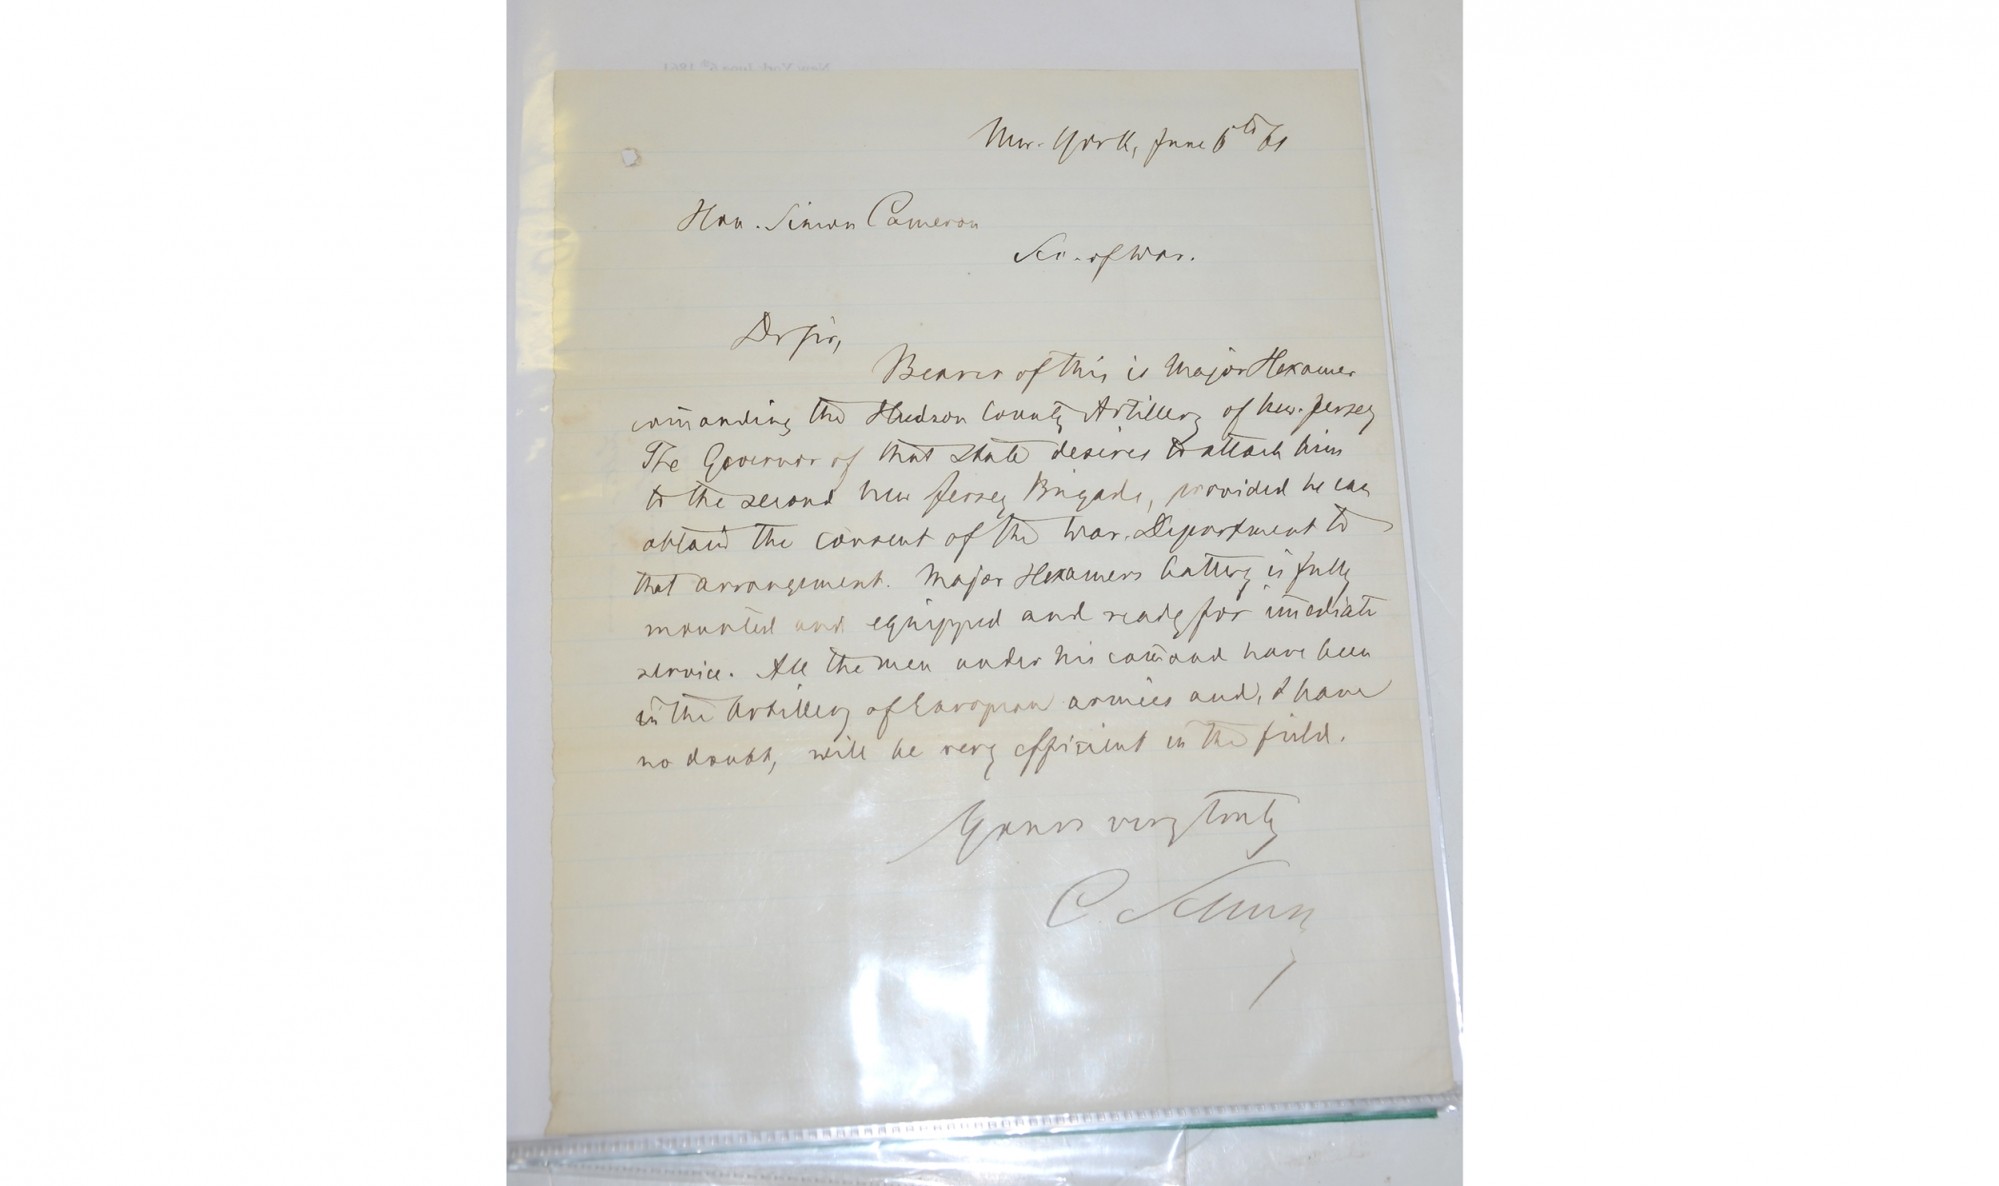 New York, June 6th 61
Hon. Simon Cameron
Sec. of War.
Dr Sir,
Bearer of this is Major Hexamer
com̅anding the Hudson County Artillery of New-Jersey
The Governor of that State desires to attach him
to the second New Jersey Brigade, provided he can
obtain the consent of the War-Department to
that arrangement. Major Hexamers battery is fully
mounted and equipped and ready for im̅ediate
service. All the men under his com̅and have been
in the Artillery of European armies and, I have
no doubt, will be very efficient in the field.
Yours very truly
C. Schurz